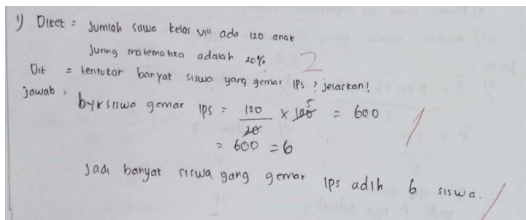 1) Diket = Jumlah siswa kelas VIII ada 120 anak
Juring matematika adalah 20%
2
Dit = tentukan banyak siswa yang gemar IPS ? jelaskan!
jawab :
byk siswa gemar IPS = 120/20 × 100 5 = 600
1
= 600 = 6
Jadi banyak siswa yang gemar IPS adlh 6 siswa.